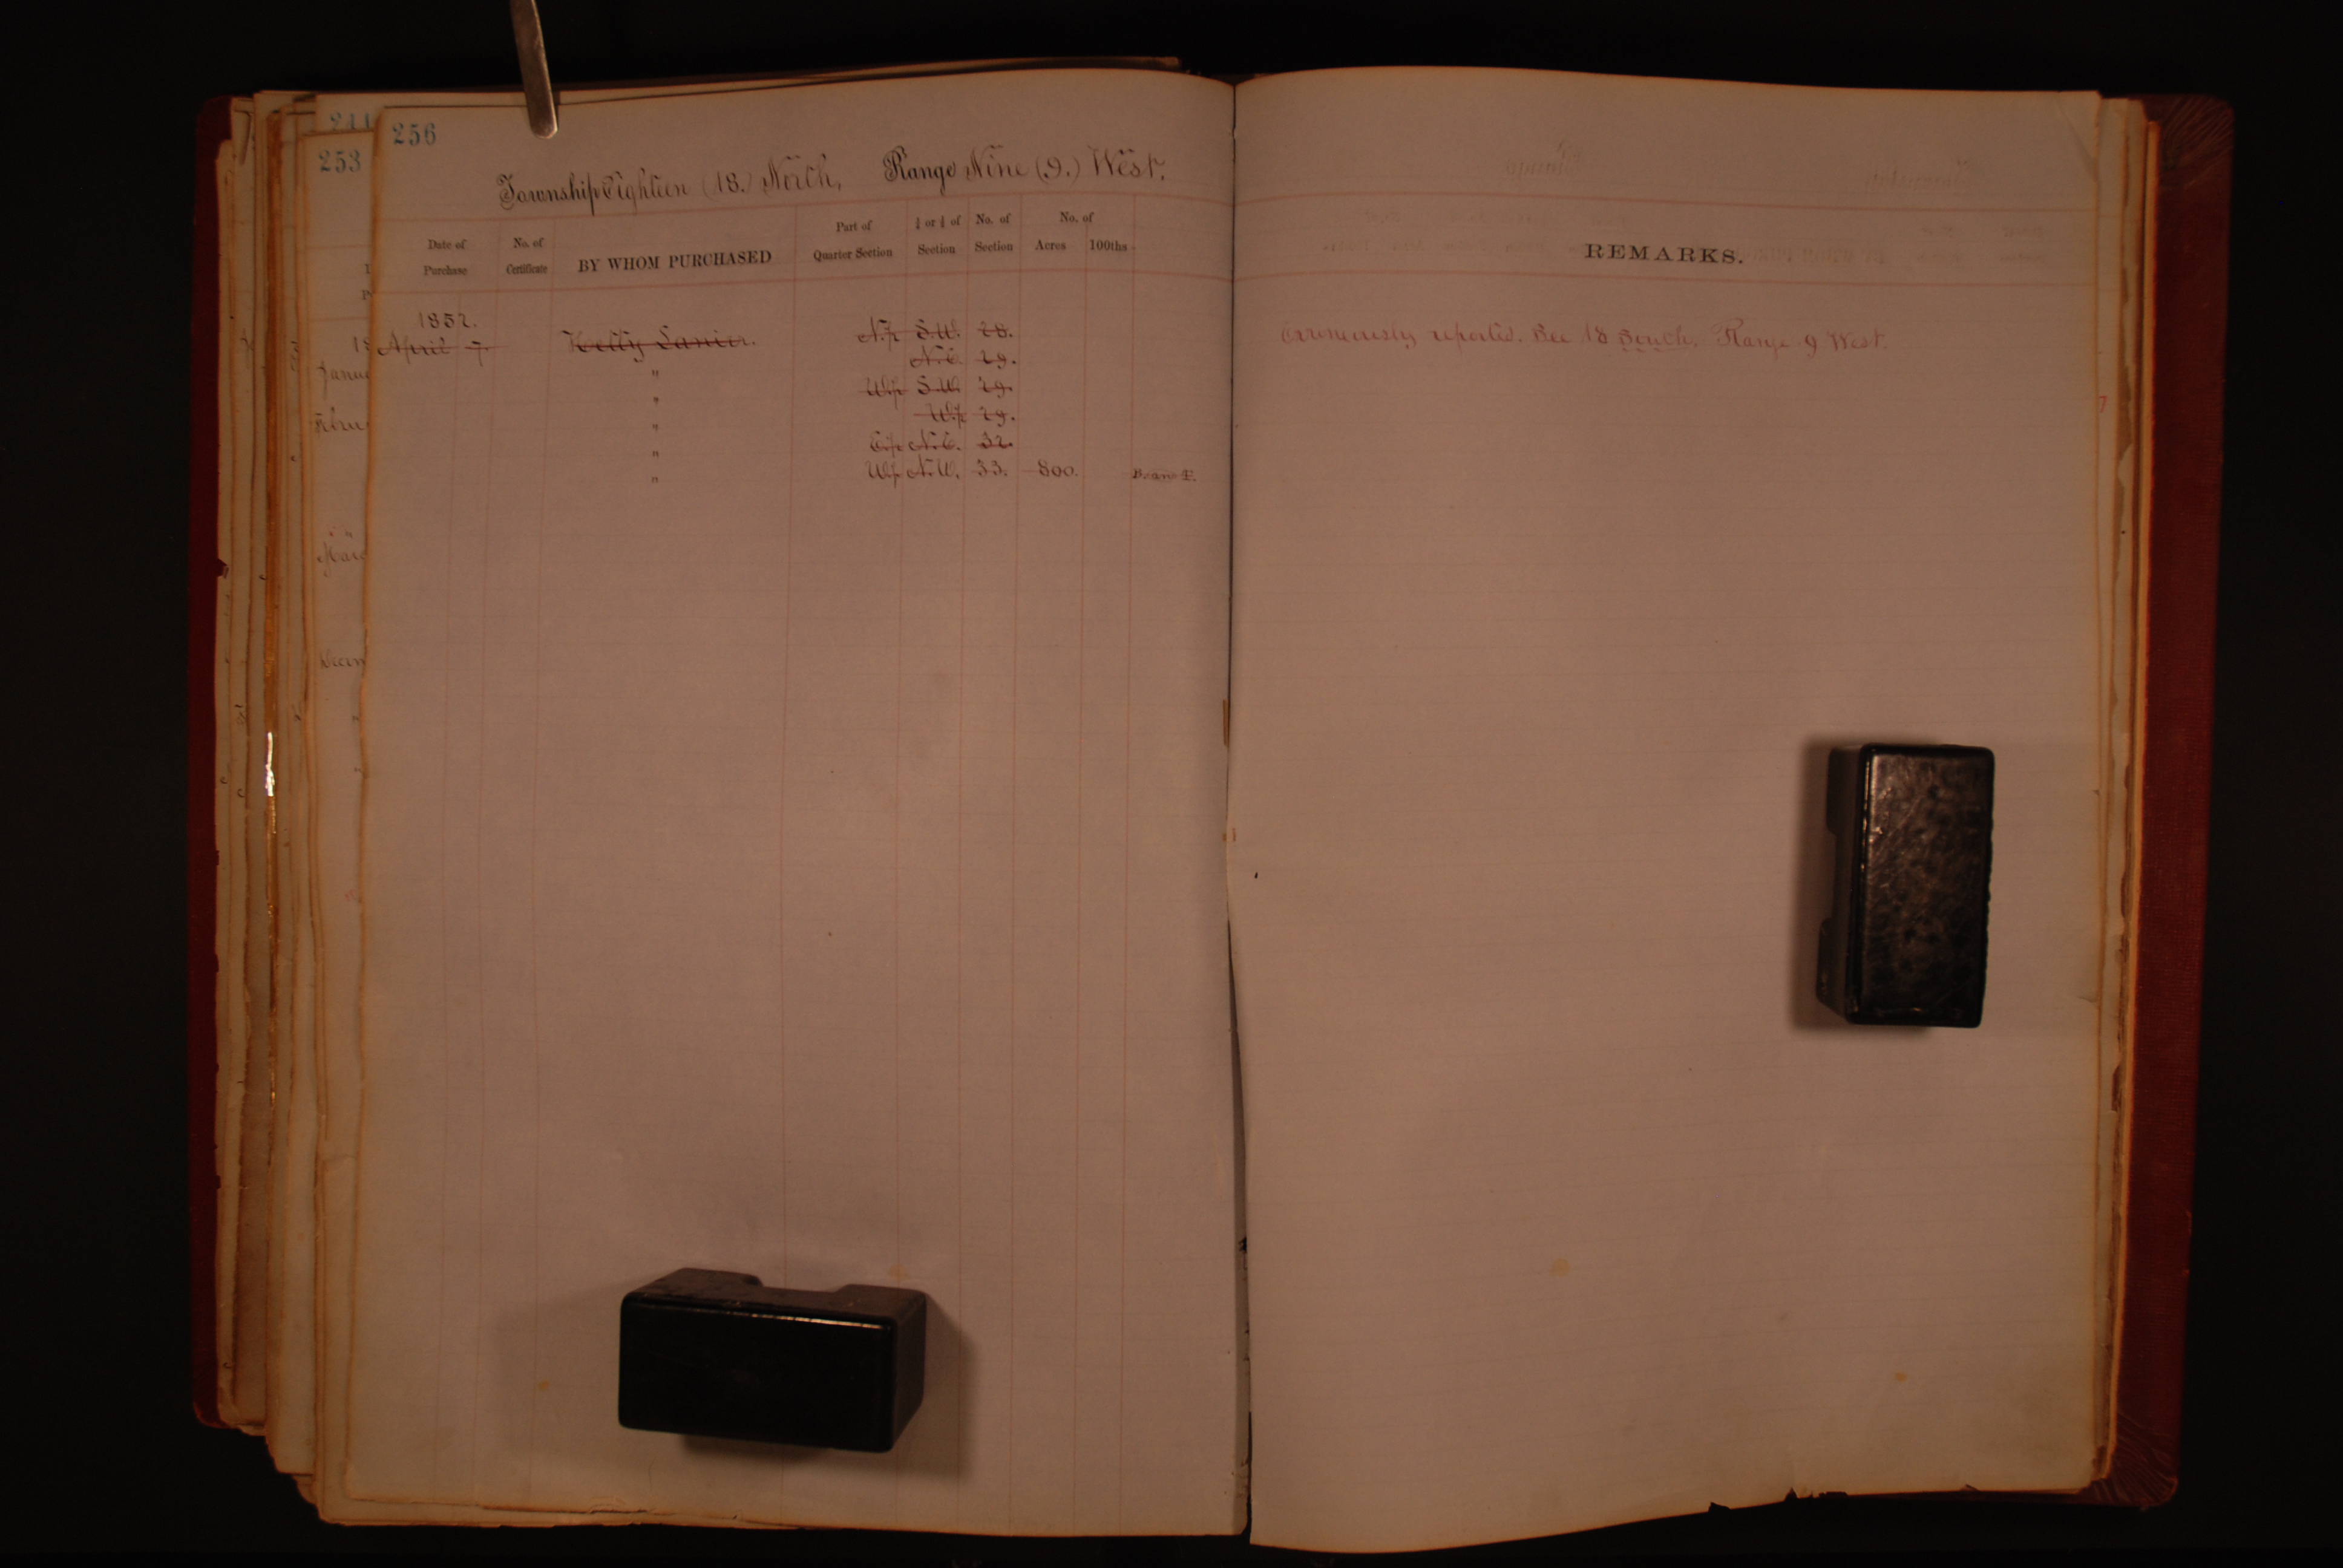 241
253
256
Township Eighteen (18.) North, Range Nine (9.) West.
Date of Purchase No. of Certificate BY WHOM PURCHASED Part of Quarter Section ½ or ¼ of Section No. of Section No. of Acres 100ths
REMARKS.
1852.
April 7. Kelly Lanier. N.½ S.W. 28. Erroneously reported. See 18 South, Range 9 West.
" N.E. 29.
" W.½ S.W. 29.
" W.½ 29.
" E.½ N.E. 32.
" W.½ N.W. 33. 800.
Janua
Februa
Marc
Decem